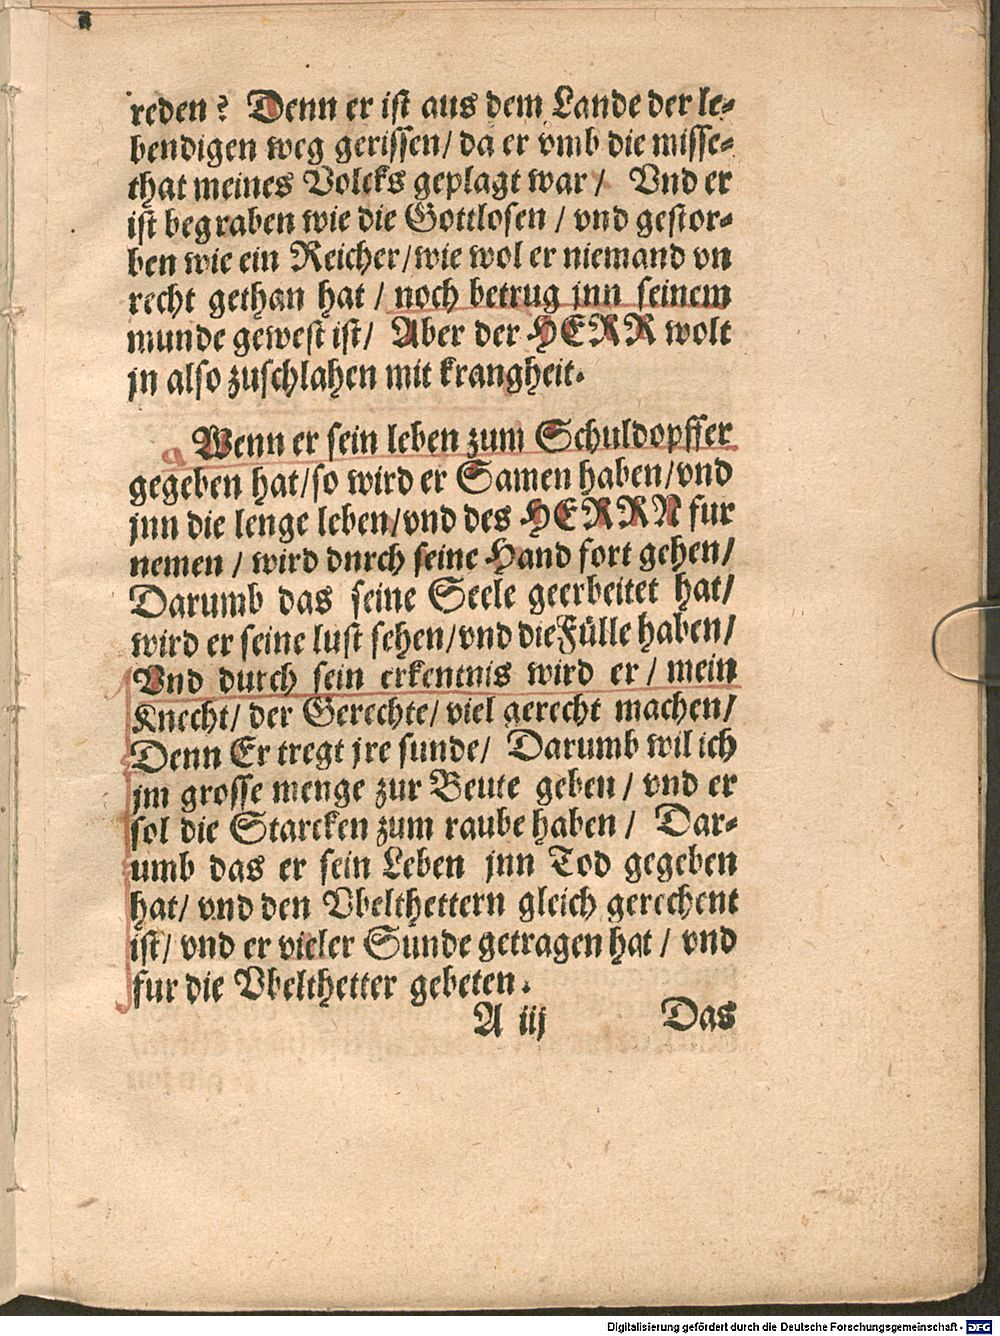 reden? Denn er ist aus dem Lande der le-
bendigen weg gerissen/ da er vmb die misse-
that meines Volcks geplagt war/ Vnd er
ist begraben wie die Gottlosen/ vnd gestor-
ben wie ein Reicher/wie wol er niemand vn
recht gethan hat/ noch betrug jnn seinem
munde gewest ist/ Aber der HERR wolt
jn also zuschlahen mit krangheit.
Wenn er sein leben zum Schuldopffer
gegeben hat/so wird er Samen haben/vnd
jnn die lenge leben/vnd des HERRN fur
nemen/ wird durch seine Hand fort gehen/
Darumb das seine Seele geerbeitet hat/
wird er seine lust sehen/vnd die Fülle haben/
Vnd durch sein erkentnis wird er/ mein
Knecht/ der Gerechte/ viel gerecht machen/
Denn Er tregt jre sunde/ Darumb wil ich
jm grosse menge zur Beute geben/ vnd er
sol die Starcken zum raube haben/ Dar-
umb das er sein Leben jnn Tod gegeben
hat/ vnd den Vbelthettern gleich gerechent
ist/ vnd er vieler Sunde getragen hat/ vnd
fur die Vbelthetter gebeten.
A iij Das
Digitalisierung gefördert durch die Deutsche Forschungsgemeinschaft - DFG